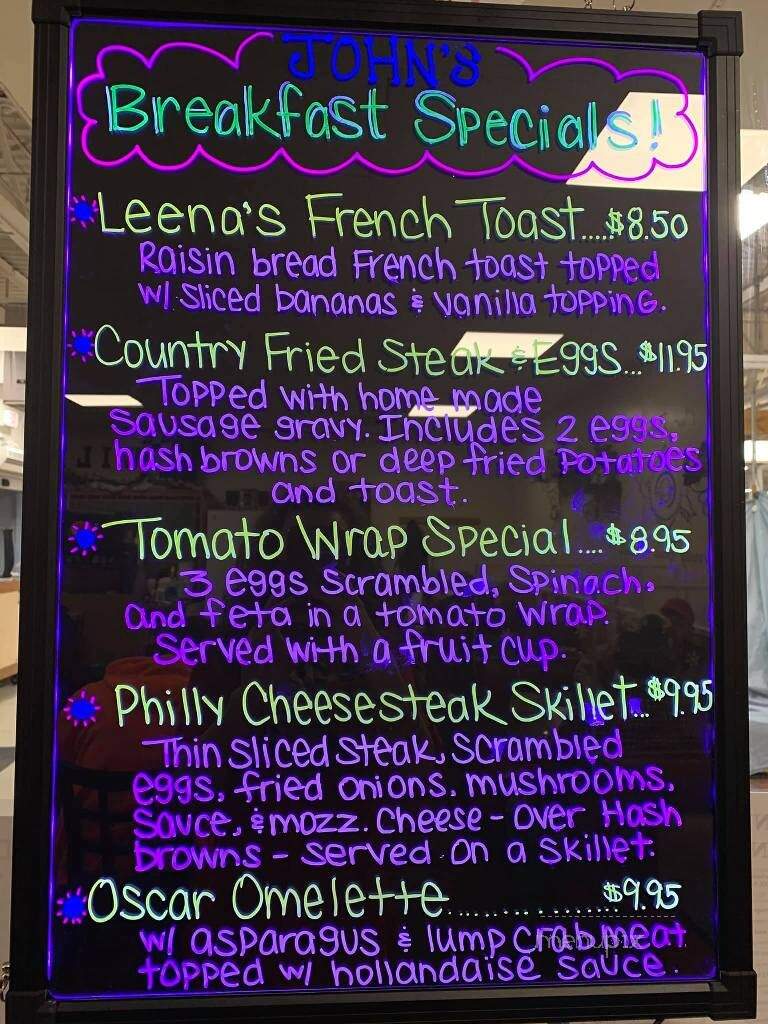 JOHN'S
Breakfast Specials!
Leena's French Toast.....$8.50
Raisin bread French toast topped
w/ sliced bananas & vanilla topping.
Country Fried Steak & Eggs...$11.95
Topped with home made
sausage gravy. Includes 2 eggs,
hash browns or deep fried potatoes
and toast.
Tomato Wrap Special....$8.95
3 eggs scrambled, spinach,
and feta in a tomato wrap.
Served with a fruit cup.
Philly Cheesesteak Skillet...$9.95
Thin sliced steak, scrambled
eggs, fried onions, mushrooms,
sauce, & mozz. cheese - over Hash
browns - served on a skillet.
Oscar Omelette..............$9.95
w/ asparagus & lump crab meat
topped w/ hollandaise sauce.